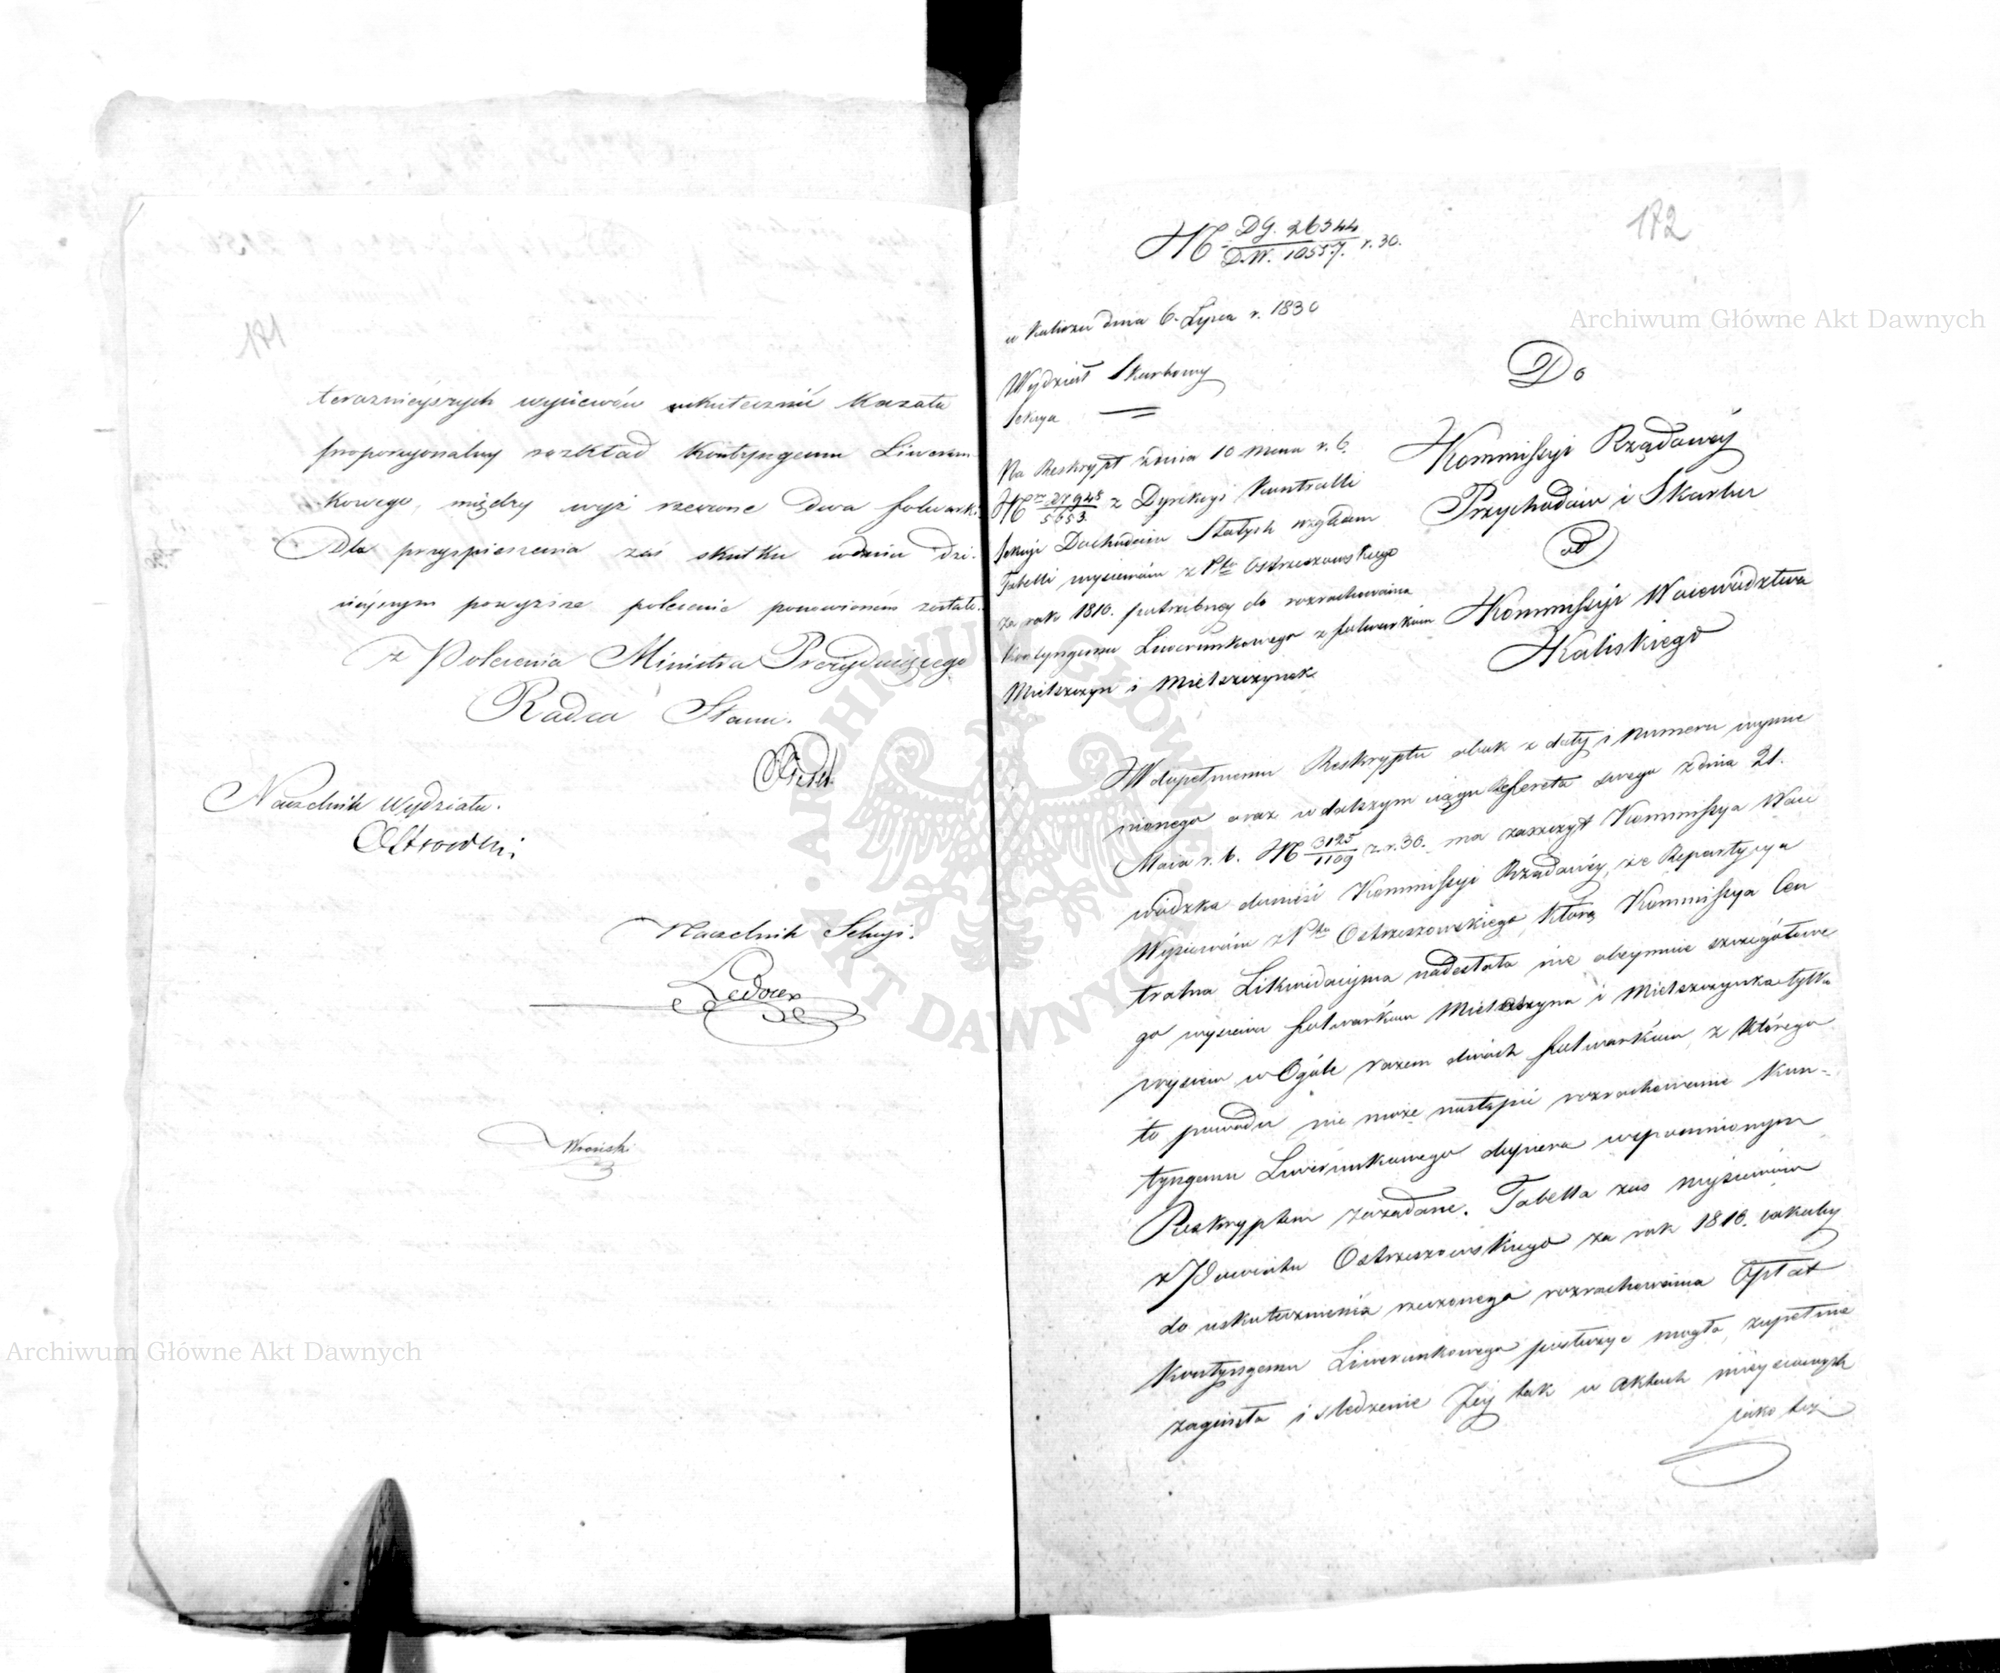 171
teraznieyszych wysiewów uskutecznić kazała
proporcyonalny rozkład Kontyngensu Liwerun-
kowego, między wyż rzeczone dwa folwarki.
Dla przyspieszenia zaś skutku w dniu dzi-
sieyszym powyższe polecenie ponowionem zostało.
z Polecenia Ministra Prezydującego
Radca Stanu.
Naczelnik Wydziału.
Ostrowski
Naczelnik Sekcyi.
Ledoux
Wroński
172
N DG. 26344 r. 30.
D.W. 10557.
w Kaliszu dnia 6. Lipca r. 1830
Wydział Skarbowy
Sekcya =
Na Reskrypt z dnia 10 Maia r. b.
N 27948 z Dyrekcyi Kontrolli
5653.
Sekcyi Dochodów Stałych względem
Tabelli wysiewów z Ptu Ostrzeszowskiego
za rok 1810. potrzebney do rozrachowania
Kontyngensu Liwerunkowego z folwarków
Mielszczyn i Mielszczynek
Do
Kommissyi Rządowéy
Przychodów i Skarbu
od
Kommissyi Woiewództwa
Kaliskiego
W dopełnieniu Reskryptu obok z daty i Numeru wymie
nionego oraz w dalszym ciągu Referatu swego z dnia 21.
Maia r. b. N 3125 z r. 30. ma zaszczyt Kommissya Woie
1109
wódzka donieść Kommissyi Rządowéy, że Repartycya
Wysiewów z Ptu Ostrzeszowskiego, którą Kommissya Cen
tralna Likwidacyjna nadesłała nie obeymuie szczegółowe
go wysiewu folwarków Mielszczyna i Mielszczynka tylko
wysiew w Ogóle razem dwóch folwarków, z którego
to powodu nie może nastąpić rozrachowanie Kon-
tyngensu Liwerunkowego dopiero wspomnionym
Reskryptem zażądane. Tabella zaś wysiewów
z Powiatu Ostrzeszowskiego za rok 1810. iakaby
do uskutecznienia rzeczonego rozrachowania Opłat
Kontyngensu Liwerunkowego posłużyć mogła, zupełnie
zaginęła i śledzenie Jéy tak w Aktach mieyscowych
iako też